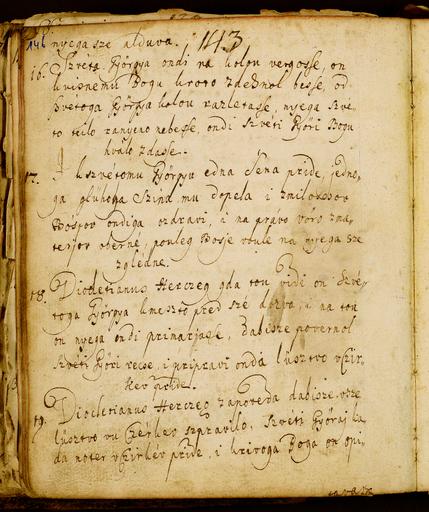 nyega sze alduva. 143
16. Szveta Györgya ondi na kolou vergosse, on
kvisnemu Bogu kroto zdehnol besse, od
szvetoga Györgya kolou razletasse, nyega szve
to teilo ranyeno nebesse, ondi szveti Györi Bogu
hválo zdasse.
17. I k szvetomu Györgyu edna sena pride, jedno,
ga glühoga Szina mu dopela i
Goszpon ondiga ozdravi, i na právo vöro
obérne, pouleg Bosje voule na nyega sze
zgledne.
18. Diocletianus Herczeg gda tou vidi on Szvé,
toga Györgya k meszto pred szé dozva, i na tou
on nyega ondi prinarjasse, da bisze povernol
Szvéti Györi recse, i pripravi onda lüsztvo v Czir,
kev pride.
19. Diocletianus Herczeg zapoveda da bisze vsze
lüsztvo vu Czérkev szpravilo, Szvéti Györaj ka,
da noter v Czirkev pride, i krivoga Boga on opi,